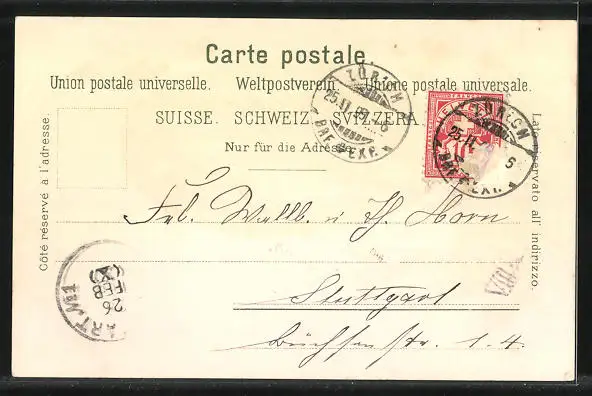 Carte postale.
Union postale universelle. Weltpostverein. Unione postale universale.
SUISSE. SCHWEIZ. SVIZZERA.
Nur für die Adresse.
Côté réservé à l'adresse.
Lato riservato all' indirizzo.
ZÜRICH
25.II.
BRF. EXP.
ZÜRICH
25.II.
BRF. EXP.
HELVETIA
FRANCO
10
Frl. Wallb. u. Th. Horn
Stuttgart
Büchsenstr. 14.
ART. № 1
26
FEB
(X)
VIII